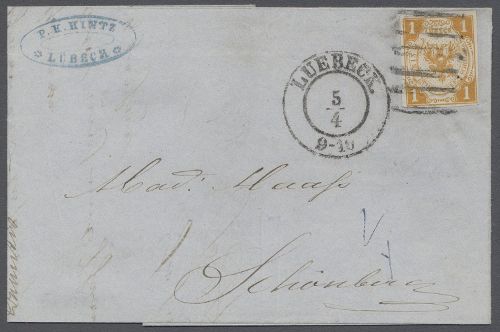 P. H. HINTZ
LÜBECK
LUEBECK.
5
4
9-10
1 1
1 1
Mad. Maaß
Schönberg